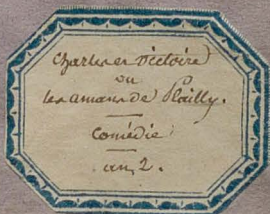 Charles et Victoire
ou
les amans de Plailly.
Comédie
an 2.